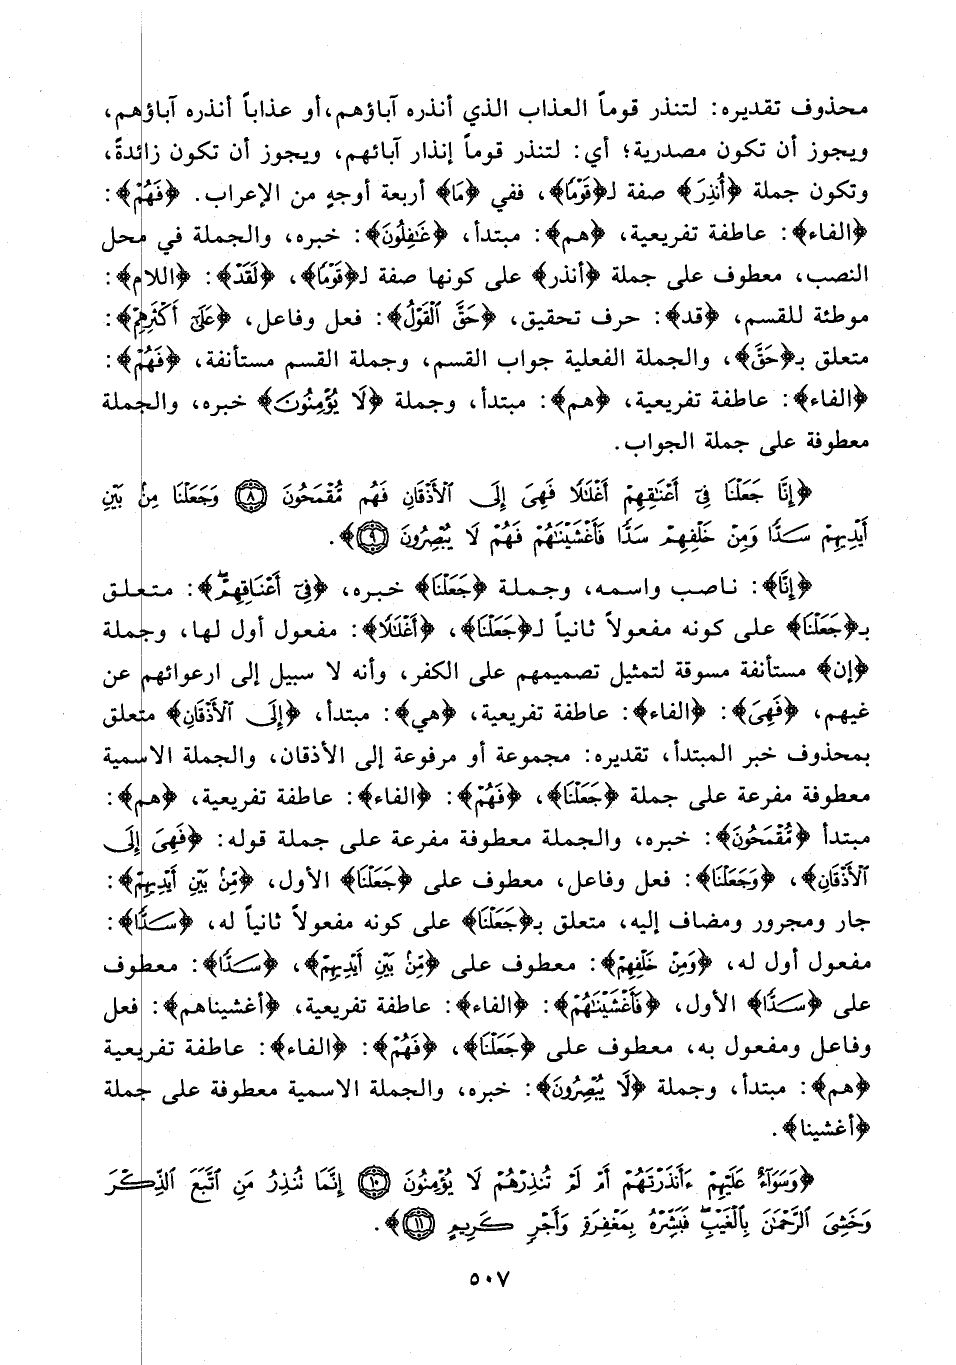 محذوف تقديره: لتنذر قوماً العذاب الذي أنذره آباؤهم، أو عذاباً أنذره آباؤهم،
ويجوز أن تكون مصدرية؛ أي: لتنذر قوماً إنذار آبائهم، ويجوز أن تكون زائدةً،
وتكون جملة ﴿أُنذِرَ﴾ صفة لـ﴿قَوْمًا﴾، ففي ﴿مَا﴾ أربعة أوجهٍ من الإعراب. ﴿فَهُمْ﴾:
﴿الفاء﴾: عاطفة تفريعية، ﴿هم﴾: مبتدأ، ﴿غَٰفِلُونَ﴾: خبره، والجملة في محل
النصب، معطوف على جملة ﴿أنذر﴾ على كونها صفة لـ﴿قَوْمًا﴾، ﴿لَقَدْ﴾: ﴿اللام﴾:
موطئة للقسم، ﴿قد﴾: حرف تحقيق، ﴿حَقَّ ٱلْقَوْلُ﴾: فعل وفاعل، ﴿عَلَىٰٓ أَكْثَرِهِمْ﴾:
متعلق بـ﴿حَقَّ﴾، والجملة الفعلية جواب القسم، وجملة القسم مستأنفة، ﴿فَهُمْ﴾:
﴿الفاء﴾: عاطفة تفريعية، ﴿هم﴾: مبتدأ، وجملة ﴿لَا يُؤْمِنُونَ﴾ خبره، والجملة
معطوفة على جملة الجواب.
﴿إِنَّا جَعَلْنَا فِىٓ أَعْنَٰقِهِمْ أَغْلَٰلًا فَهِىَ إِلَى ٱلْأَذْقَانِ فَهُم مُّقْمَحُونَ ٨ وَجَعَلْنَا مِنۢ بَيْنِ
أَيْدِيهِمْ سَدًّا وَمِنْ خَلْفِهِمْ سَدًّا فَأَغْشَيْنَٰهُمْ فَهُمْ لَا يُبْصِرُونَ ٩﴾.
﴿إِنَّا﴾: ناصب واسمه، وجملة ﴿جَعَلْنَا﴾ خبره، ﴿فِىٓ أَعْنَاقِهِمْ﴾: متعلق
بـ﴿جَعَلْنَا﴾ على كونه مفعولاً ثانياً لـ﴿جَعَلْنَا﴾، ﴿أَغْلَٰلًا﴾: مفعول أول لها، وجملة
﴿إن﴾ مستأنفة مسوقة لتمثيل تصميمهم على الكفر، وأنه لا سبيل إلى ارعوائهم عن
غيهم، ﴿فَهِىَ﴾: ﴿الفاء﴾: عاطفة تفريعية، ﴿هي﴾: مبتدأ، ﴿إِلَى ٱلْأَذْقَانِ﴾ متعلق
بمحذوف خبر المبتدأ، تقديره: مجموعة أو مرفوعة إلى الأذقان، والجملة الاسمية
معطوفة مفرعة على جملة ﴿جَعَلْنَا﴾، ﴿فَهُمْ﴾: ﴿الفاء﴾: عاطفة تفريعية، ﴿هم﴾:
مبتدأ ﴿مُّقْمَحُونَ﴾: خبره، والجملة معطوفة مفرعة على جملة قوله: ﴿فَهِىَ إِلَى
ٱلْأَذْقَانِ﴾، ﴿وَجَعَلْنَا﴾: فعل وفاعل، معطوف على ﴿جَعَلْنَا﴾ الأول، ﴿مِنۢ بَيْنِ أَيْدِيهِمْ﴾:
جار ومجرور ومضاف إليه، متعلق بـ﴿جَعَلْنَا﴾ على كونه مفعولاً ثانياً له، ﴿سَدًّا﴾:
مفعول أول له، ﴿وَمِنْ خَلْفِهِمْ﴾: معطوف على ﴿مِنۢ بَيْنِ أَيْدِيهِمْ﴾، ﴿سَدًّا﴾: معطوف
على ﴿سَدًّا﴾ الأول، ﴿فَأَغْشَيْنَٰهُمْ﴾: ﴿الفاء﴾: عاطفة تفريعية، ﴿أغشيناهم﴾: فعل
وفاعل ومفعول به، معطوف على ﴿جَعَلْنَا﴾، ﴿فَهُمْ﴾: ﴿الفاء﴾: عاطفة تفريعية
﴿هم﴾: مبتدأ، وجملة ﴿لَا يُبْصِرُونَ﴾: خبره، والجملة الاسمية معطوفة على جملة
﴿أغشينا﴾.
﴿وَسَوَآءٌ عَلَيْهِمْ ءَأَنذَرْتَهُمْ أَمْ لَمْ تُنذِرْهُمْ لَا يُؤْمِنُونَ ١٠ إِنَّمَا تُنذِرُ مَنِ ٱتَّبَعَ ٱلذِّكْرَ
وَخَشِىَ ٱلرَّحْمَٰنَ بِٱلْغَيْبِ فَبَشِّرْهُ بِمَغْفِرَةٍ وَأَجْرٍ كَرِيمٍ ١١﴾.
٥٠٧